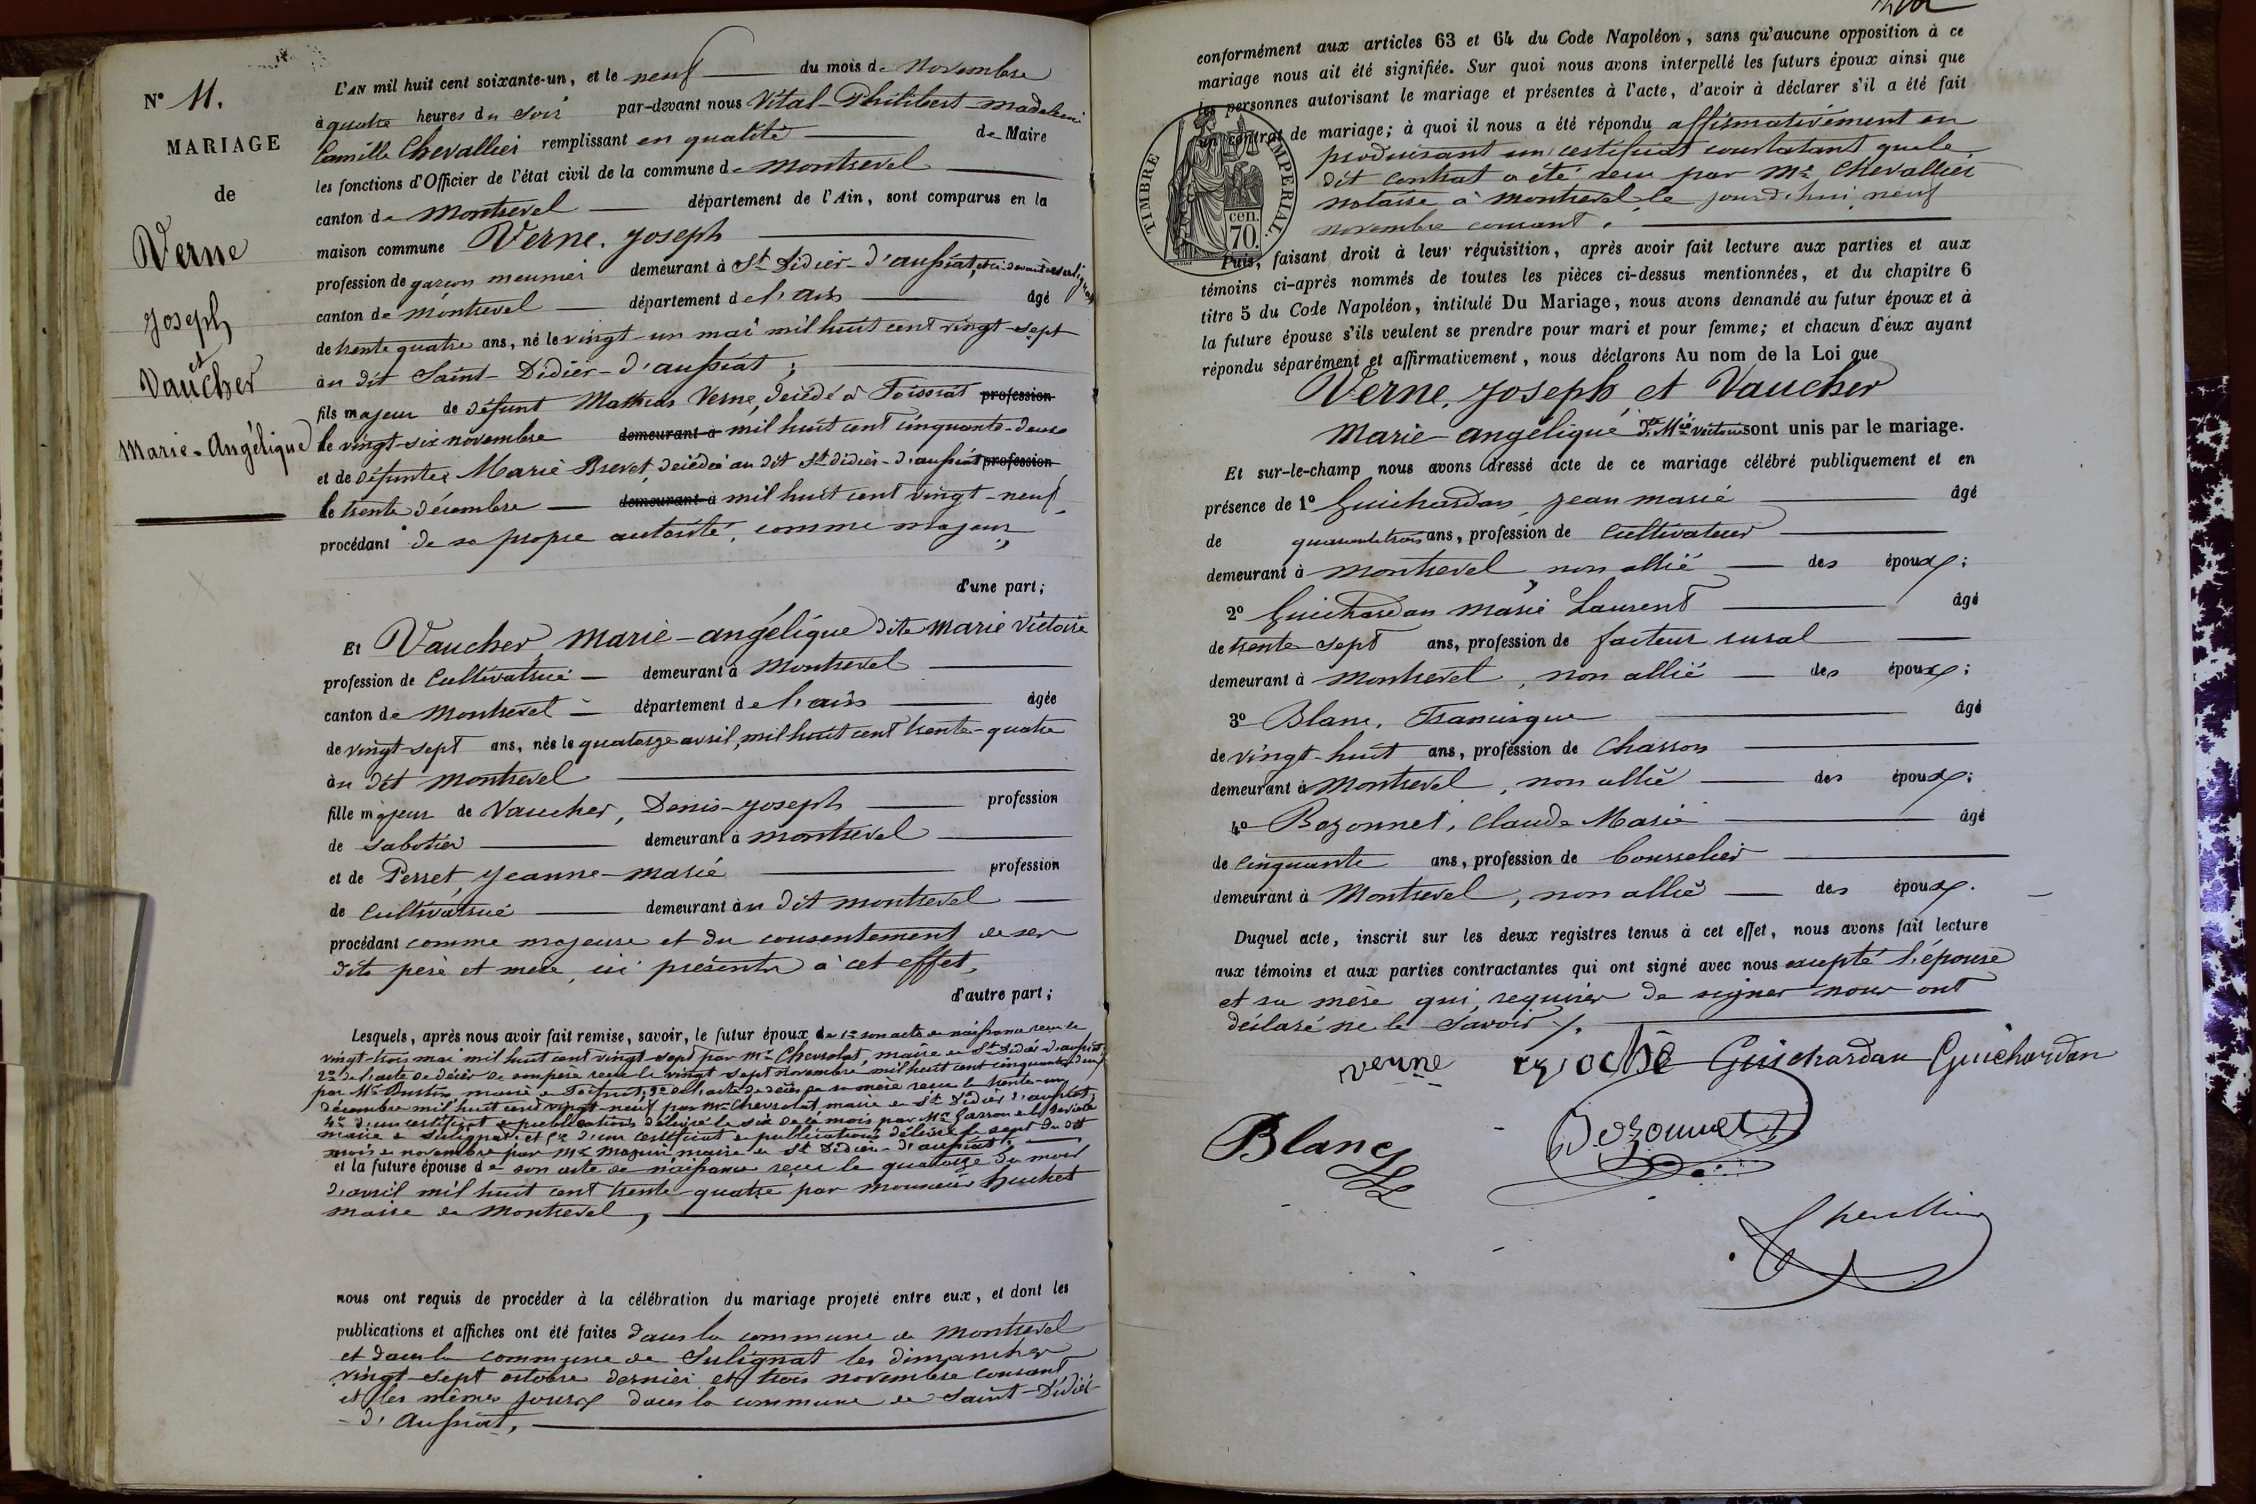 N° 11.
MARIAGE
de
Verne
Joseph
et
Vaucher
Marie-Angélique
L'AN mil huit cent soixante-un, et le neuf du mois de Novembre
à quatre heures du soir par-devant nous Vital-Philibert-
Camille Chevallier remplissant en qualité de Maire
les fonctions d'Officier de l'état civil de la commune de Montrevel
canton de Montrevel département de l'Ain, sont comparus en la
maison commune Verne, Joseph
profession de garçon meunier demeurant à St Didier-d'aussiat,
canton de Montrevel département de l'ain âgé
de trente quatre ans, né le vingt-un mai mil huit cent vingt-sept
au dit Saint-Didier-d'aussiat;
fils majeur de défunt Mathias Verne, décédé à Foissiat profession
le vingt-six novembre demeurant à mil huit cent cinquante-deux
et de défunte Marie Brevet, décédée au dit St didier-d'aussiat profession
le trente décembre demeurant à mil huit cent vingt-neuf,
procédant de sa propre autorité, comme majeur,
d'une part;
Et Vaucher, Marie-angélique dite Marie Victoire
profession de Cultivatrice demeurant à Montrevel
canton de Montrevel département de l'ain âgée
de vingt-sept ans, née le quatorze avril, mil huit cent trente-quatre
au dit Montrevel
fille majeur de Vaucher, Denis-Joseph profession
de sabotier demeurant à Montrevel
et de Perret, Jeanne-Marie profession
de Cultivatrice demeurant au dit Montrevel
procédant comme majeure et du consentement de ses
dits père et mère, ici présents à cet effet,
d'autre part;
Lesquels, après nous avoir fait remise, savoir, le futur époux de 1° son acte de naissance reçu le
vingt-trois mai mil huit cent vingt-sept par Mr Chevrolat, maire de St Didier d'aussiat
2° de l'acte de décès de son père reçu le vingt sept novembre mil huit cent cinquante deux
par Mr maire de Foissiat; 3° de l'acte de décès de sa mère reçu le trente-un
décembre mil huit cent vingt-neuf par Mr Chevrolat maire de St Didier d'aussiat,
4° d'un certificat de publications délivré le six de ce mois par Mr
maire de Sulignat; et 5° d'un certificat de publications délivré le sept du dit
mois de novembre par Mr maire de St Didier-d'aussiat;
et la future épouse de son acte de naissance reçu le quatorze du mois
d'avril mil huit cent trente-quatre par monsieur Huchet
maire de Montrevel,
nous ont requis de procéder à la célébration du mariage projeté entre eux, et dont les
publications et affiches ont été faites dans la commune de Montrevel
et dans la commune de Sulignat les dimanches
vingt-sept octobre dernier et trois novembre courant
et les mêmes jours dans la commune de Saint-Didier-
-d'Aussiat,
conformément aux articles 63 et 64 du Code Napoléon, sans qu'aucune opposition à ce
mariage nous ait été signifiée. Sur quoi nous avons interpellé les futurs époux ainsi que
les personnes autorisant le mariage et présentes à l'acte, d'avoir à déclarer s'il a été fait
un contrat de mariage; à quoi il nous a été répondu affirmativement en
produisant un certificat constatant que le
dit contrat a été reçu par Me Chevallier
notaire à Montrevel le jourd'hui neuf
novembre courant.
TIMBRE IMPERIAL.
cen.
70.
Puis, faisant droit à leur réquisition, après avoir fait lecture aux parties et aux
témoins ci-après nommés de toutes les pièces ci-dessus mentionnées, et du chapitre 6
titre 5 du Code Napoléon, intitulé Du Mariage, nous avons demandé au futur époux et à
la future épouse s'ils veulent se prendre pour mari et pour femme; et chacun d'eux ayant
répondu séparément et affirmativement, nous déclarons Au nom de la Loi que
Verne, Joseph et Vaucher
Marie-angélique dte Mie Victoire sont unis par le mariage.
Et sur-le-champ nous avons dressé acte de ce mariage célébré publiquement et en
présence de 1° Guichardan Jean marie âgé
de quarante trois ans, profession de Cultivateur
demeurant à Montrevel non allié des époux;
2° Guichardan Marie Laurent âgé
de trente-sept ans, profession de facteur rural
demeurant à Montrevel, non allié des époux;
3° Blanc, Francisque âgé
de vingt-huit ans, profession de Charron
demeurant à Montrevel, non allié des époux;
4° Bozonnet, Claude Marie âgé
de cinquante ans, profession de Bourrelier
demeurant à Montrevel, non allié des époux.
Duquel acte, inscrit sur les deux registres tenus à cet effet, nous avons fait lecture
aux témoins et aux parties contractantes qui ont signé avec nous excepté l'épouse
et sa mère qui requises de signer nous ont
déclaré ne le savoir.
verne Guichardan Guichardan
Blanc Bozonnet
Chevallier